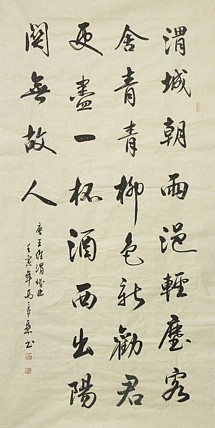 渭城朝雨浥輕塵客
舍青青柳色新勸君
更盡一杯酒西出陽
関無故人
唐王維渭城曲